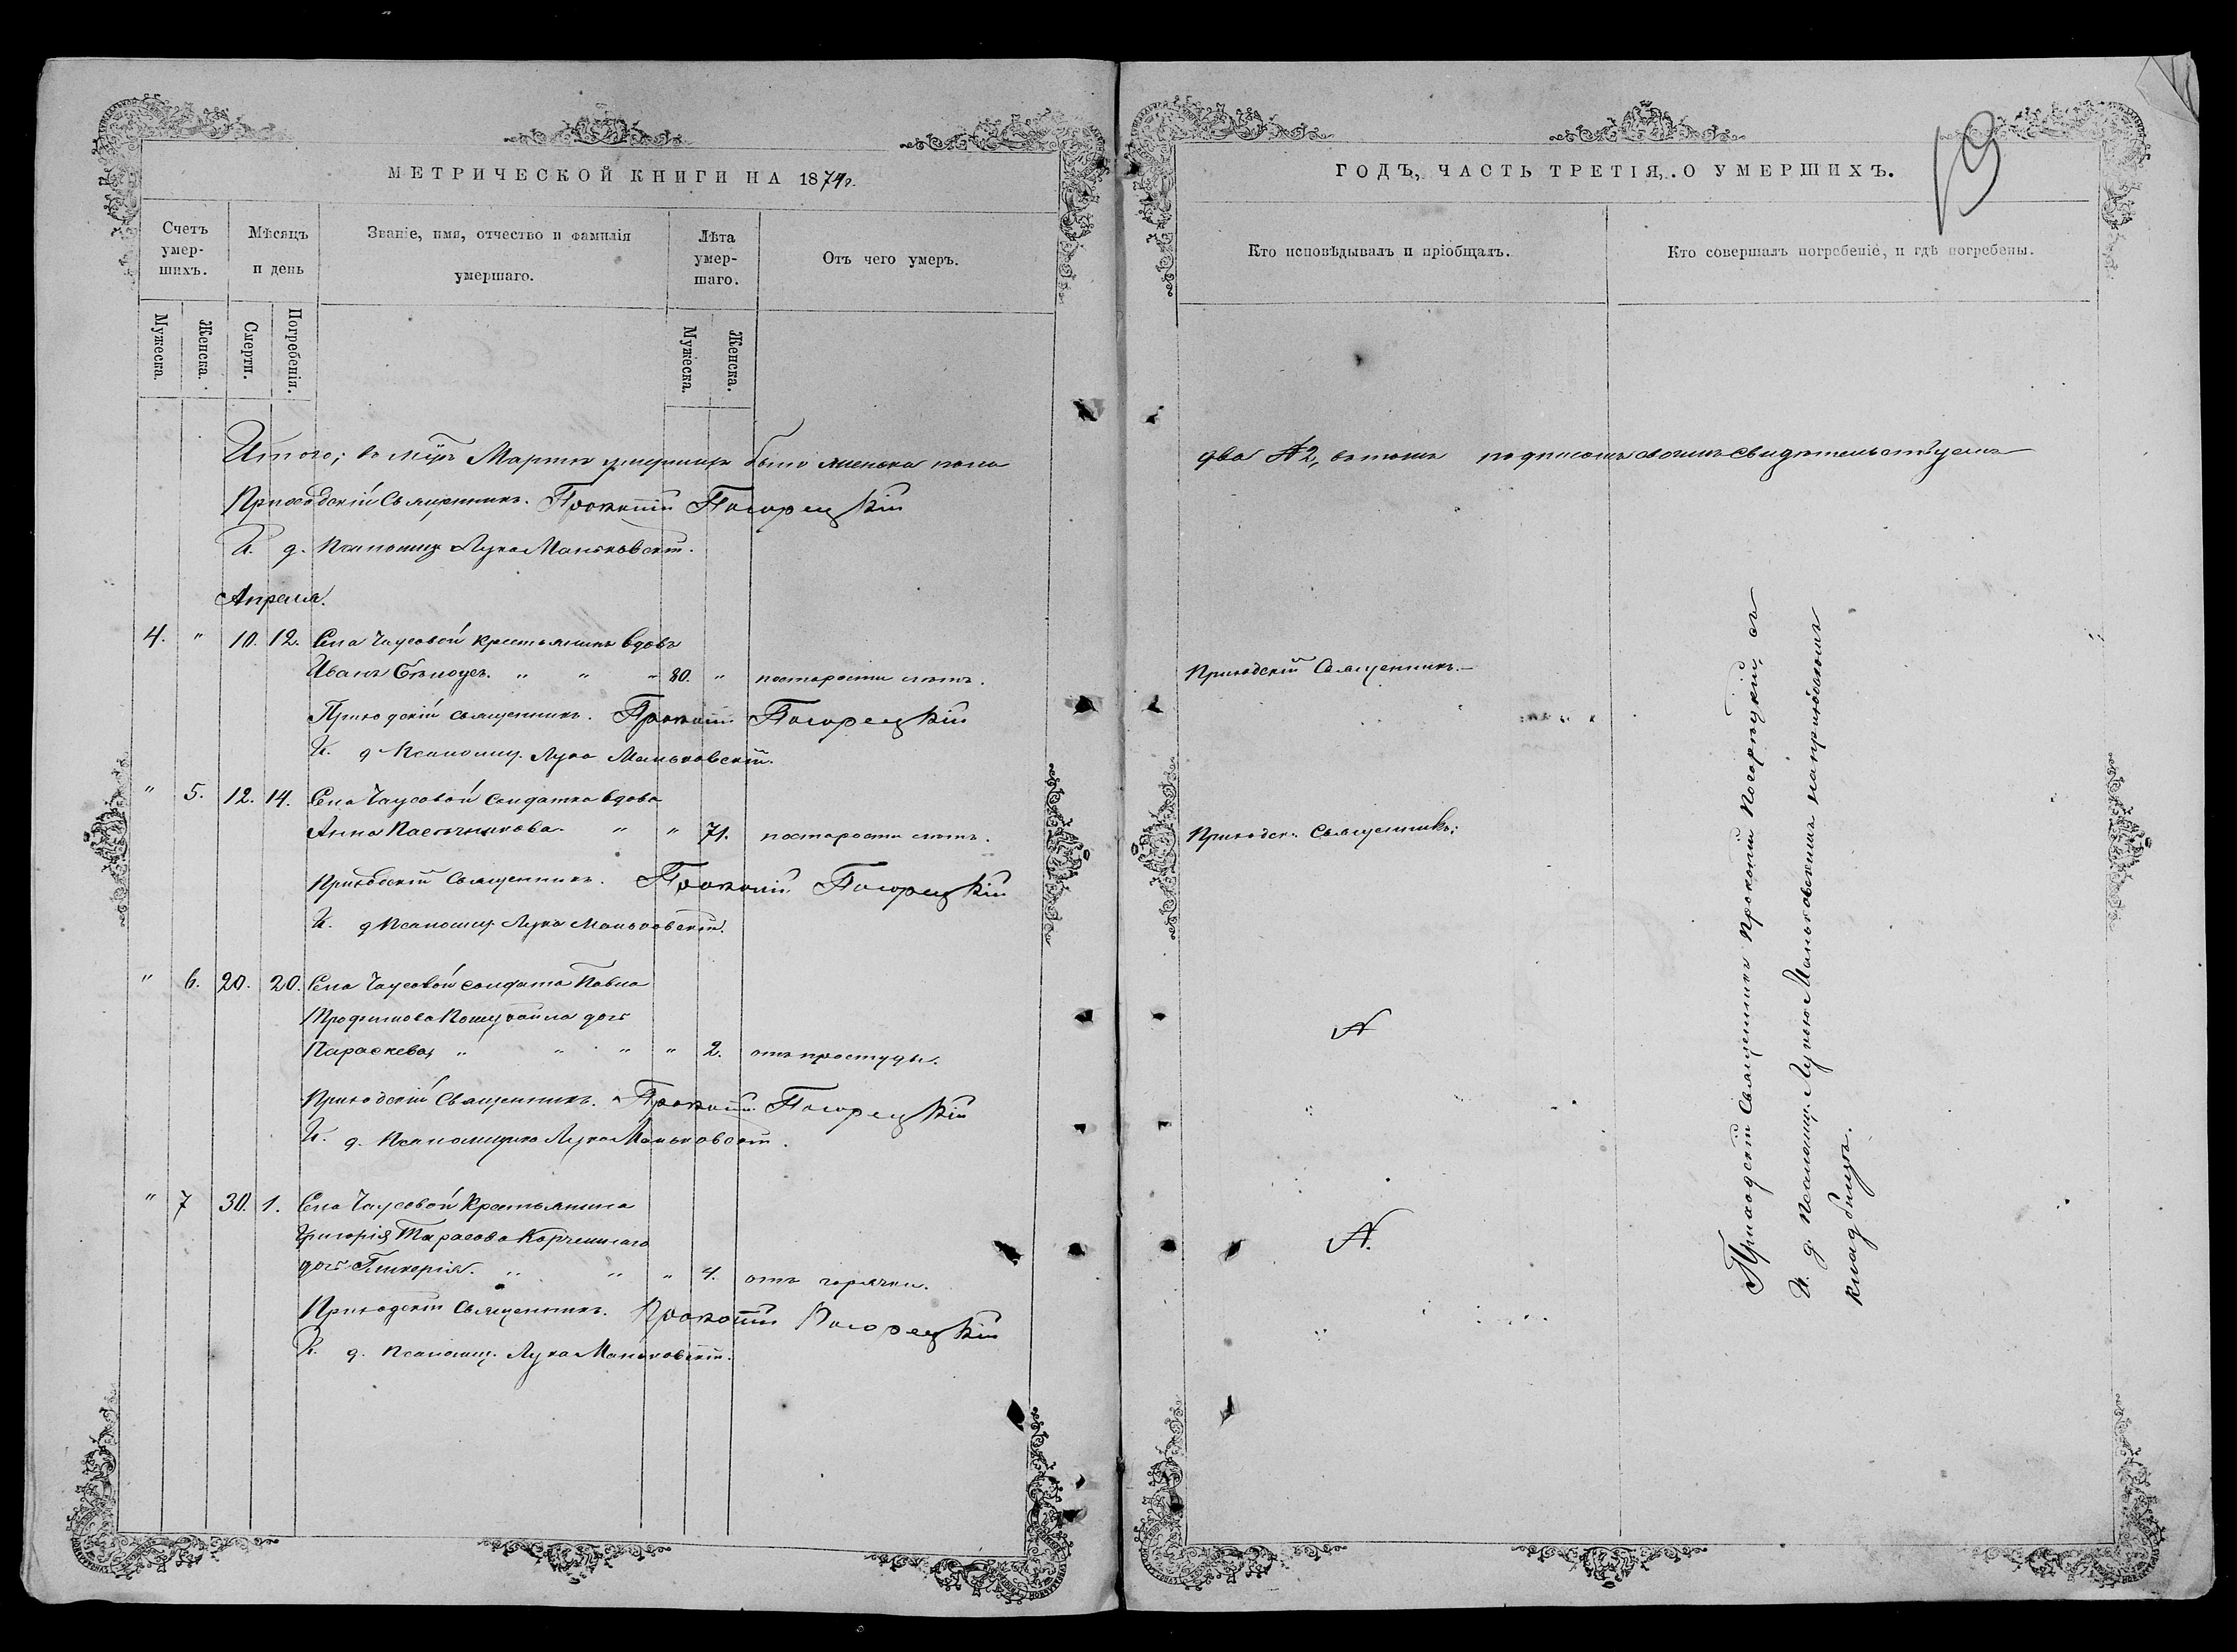 МЕТРИЧЕСКОЙ КНИГИ НА 1874 г.
Счетъ умер-шихъ.
Мѣсяцъ и день
Званіе, имя, отчество и фамилія умершаго.
Лѣта умер-шаго.
Отъ чего умеръ.
Мужеска.
Женска.
Смерти.
Погребенія.
Мужеска.
Женска.
Итого; въ Мартѣ умершихъ было женска пола
Приходскій Священникъ. Прокопій Погорецкій
И. д. Псаломщ. Лука Маньковскій.
Апреля.
4. " 10. 12. Села Чаусовой крестьянинъ вдовъ
Иванъ Бѣлоусъ. " " " 80. " по старости лѣтъ.
Приходскій священникъ. Прокопій Погорецкій
И. д. Псаломщ. Лука Маньковскій.
" 5. 12. 14. Села Чаусовой солдатка вдова
Анна Пасѣчникова. " " 71. по старости лѣтъ.
Приходскій Священникъ. Прокопій Погорецкій
И. д. Псаломщ Лука Маньковскій.
" 6. 20. 20. Села Чаусовой солдата Павла
Трофимова дочь
Параскева, " " " " 2. отъ простуды.
Приходскій Священникъ. Прокопій Погорецкій
И. д. Псаломщика Лука Маньковскій.
" 7 30. 1. Села Чаусовой Крестьянина
Григорія Тарасова
дочь Гликерія. " " " 4. отъ горячки.
Приходскій Священникъ. Прокопій Погорецкій
И. д. Псаломщ. Лука Маньковскій.
ГОДЪ, ЧАСТЬ ТРЕТІЯ, О УМЕРШИХЪ.
59
Кто исповѣдывалъ и пріобщалъ.
Кто совершалъ погребеніе, и гдѣ погребены.
два № 2, въ томъ подписомъ своимъ свидѣтельствуемъ
Приходскій Священникъ.
Приходск: Священникъ:
№
№.
Приходскій Священникъ Прокопій Погорецкій, съ
И. д. Псаломщ. Лукою Маньковскимъ на приходскомъ
кладбищѣ.